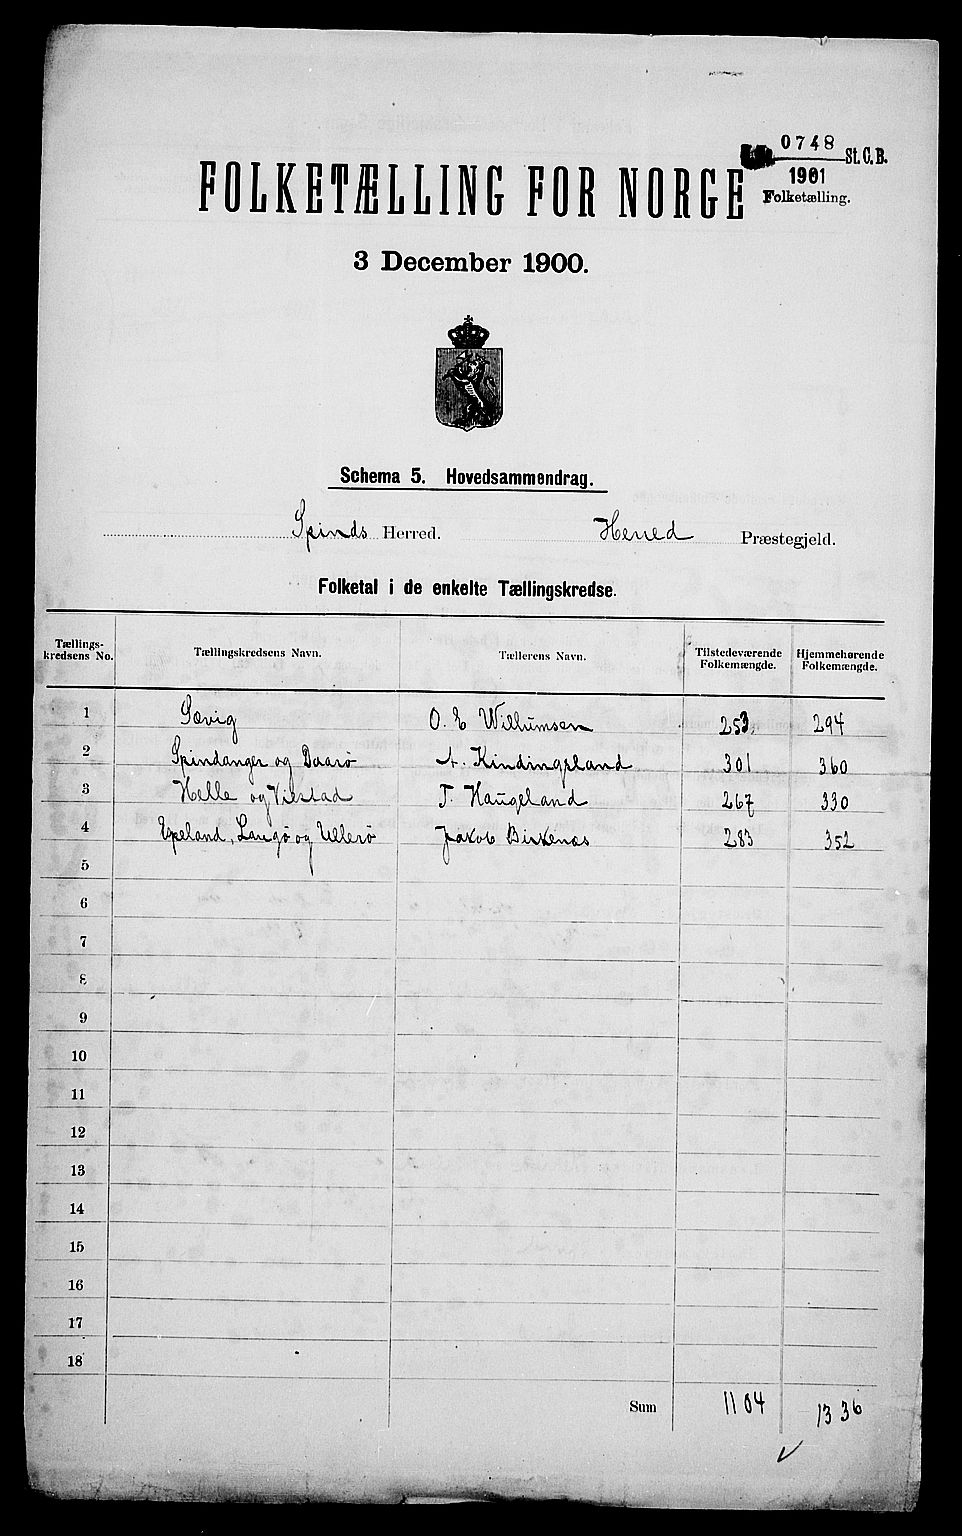 0748
St. C. B.
1901
Folketælling.
FOLKETÆLLING FOR NORGE
3 December 1900.
Schema 5. Hovedsammendrag.
Spinds Herred. Herred Præstegjeld.
Folketal i de enkelte Tællingskredse.
Tællings-kredsens No. Tællingskredsens Navn. Tællerens Navn. Tilstedeværende Folkemængde. Hjemmehørende Folkemængde.
1 Sævig O. E Willumsen 253 294
2 Spindanger og Daarø A. Kindingsland 301 360
3 Helle og Vilstad T. Haugeland 267 330
4 Espeland, Langø og Ullerø Jakob Birkenæs 283 352
5
6
7
8
9
10
11
12
13
14
15
16
17
18
Sum 1104 1336